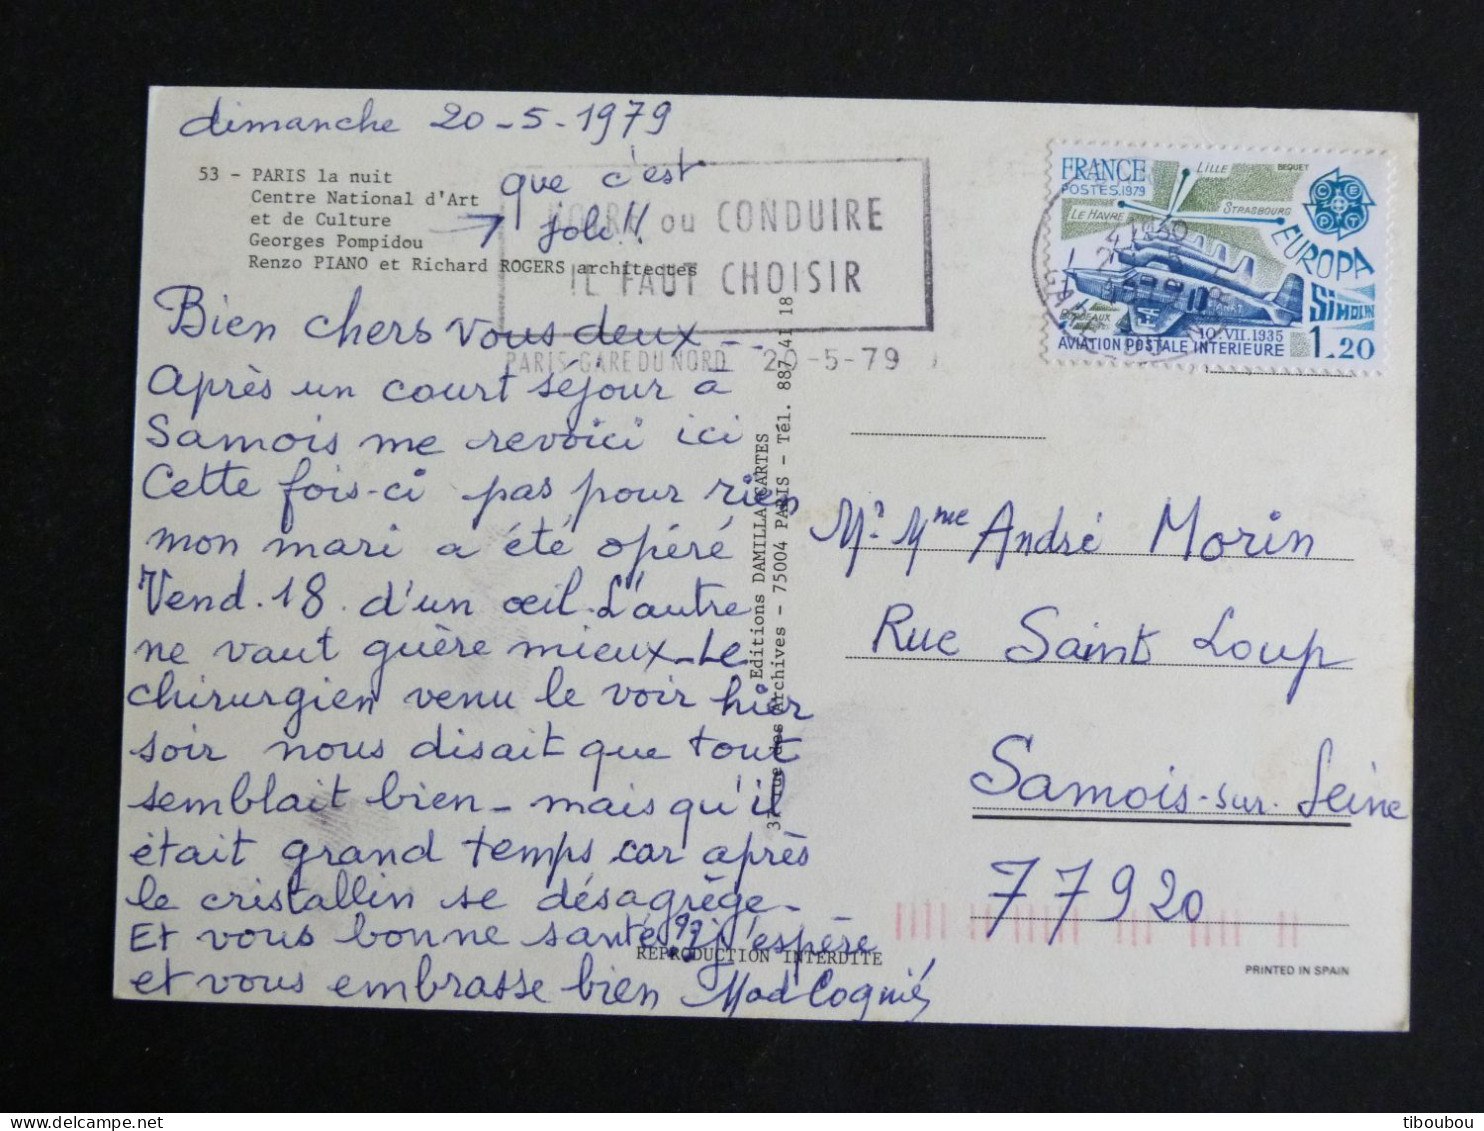 dimanche 20-5-1979
53 - PARIS la nuit
Centre National d'Art
et de Culture
Georges Pompidou
Renzo PIANO et Richard ROGERS architectes
que c'est
joli!!
ou CONDUIRE
IL FAUT CHOISIR
PARIS GARE DU NORD 20-5-79
FRANCE
POSTES 1979
LILLE
BEQUET
LE HAVRE
STRASBOURG
CEPT
EUROPA
BORDEAUX
SIMOUN
10.VII.1935
AVION POSTALE INTÉRIEURE
1.20
Bien chers vous deux --
Après un court séjour à
Samois me revoici ici
Cette fois-ci pas pour rien
mon mari a été opéré
Vend. 18. d'un œil. L'autre
ne vaut guère mieux - Le
chirurgien venu le voir hier
soir nous disait que tout
semblait bien - mais qu'il
était grand temps car après
le cristallin se désagrège -
Et vous bonne santé?? j'espère
et vous embrasse bien Mad Cognié
Editions DAMILLA CARTES
37, rue des Archives - 75004 PARIS - Tél. 887 41 18
REPRODUCTION INTERDITE
Mr. Mme André Morin
Rue Saint Loup
Samois-sur-Seine
77920
PRINTED IN SPAIN
tiboubou